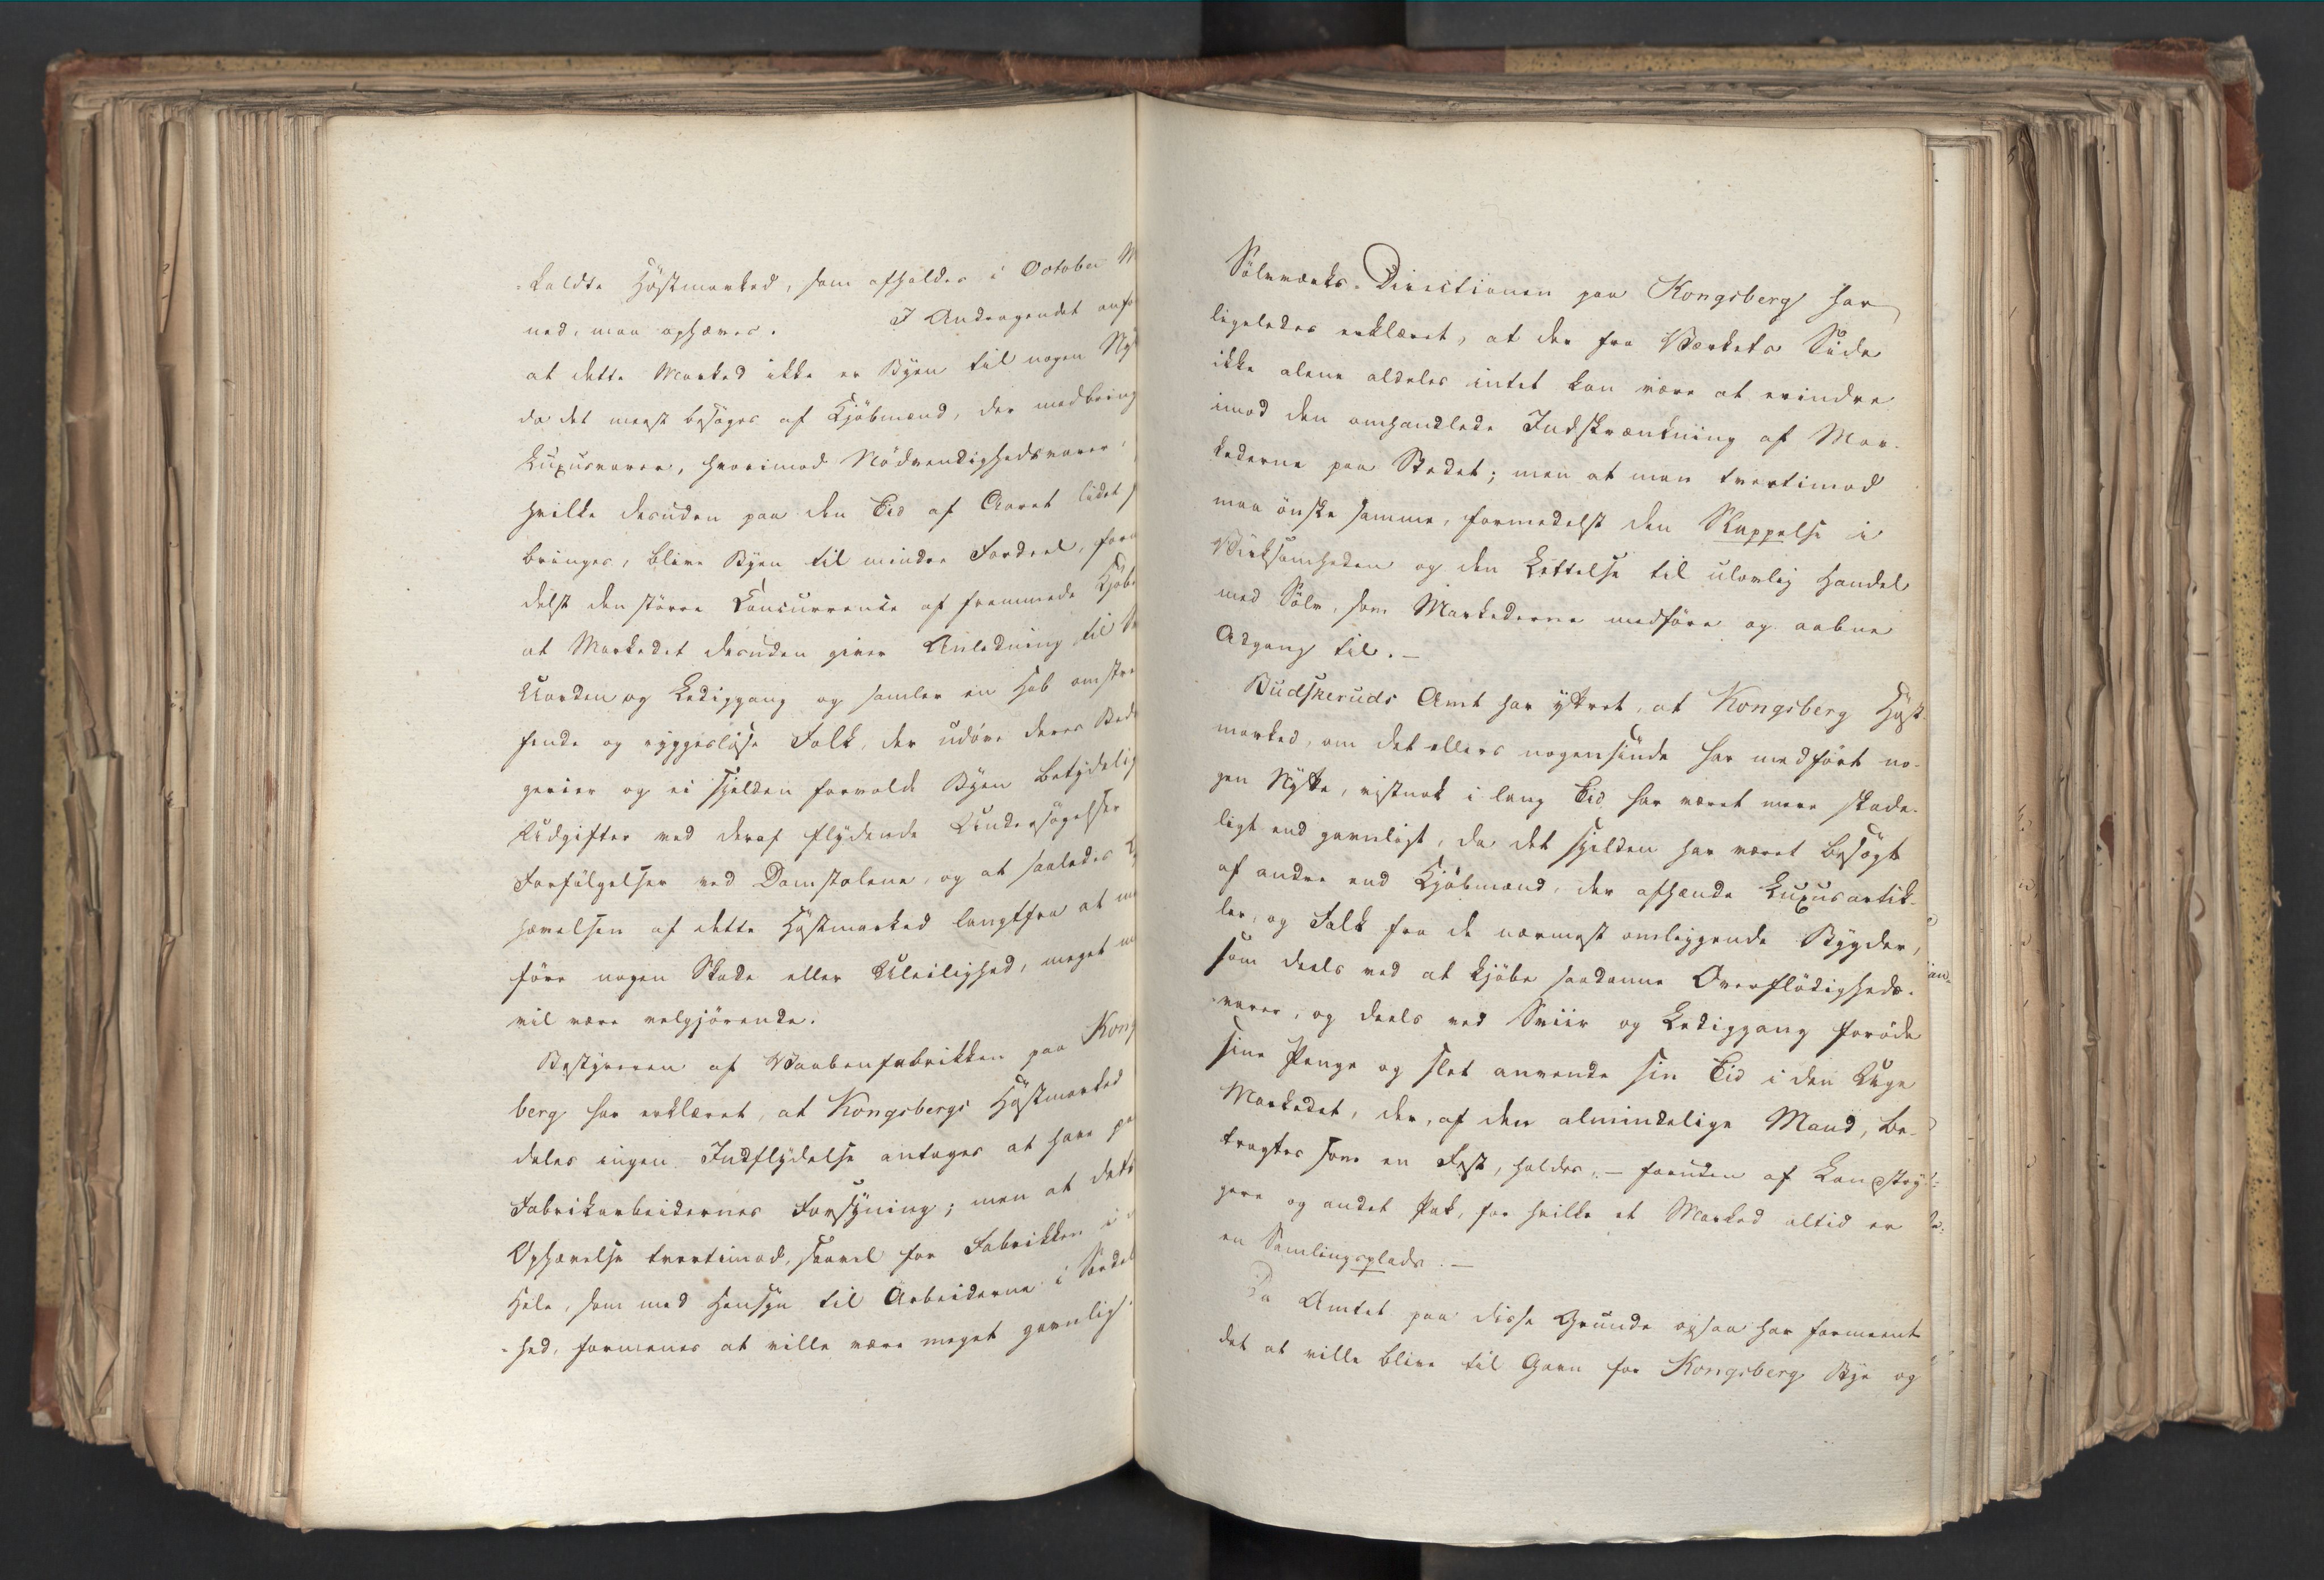 -kaldte Høstmarked, som afholdes i October M
ned, maa ophæves. I Andragendet anfø
at dette Marked ikke er Byen til nogen Ny
da det meest besøges af Kjøbmænd, der medbring
Luxusvarer, hvorimod Nødvendighedsvarer,
hvilke desuden paa den Tid af Aaret lidet
bringes, blive Byen til mindre Fordeel, form
delst den større Concurrence af fremmede Kjøbe
at Markedet desuden giver Anledning til
Uorden og Lediggang og samler en Hob omstrei
fende og ryggesløse Folk, der udøve deres Bedr
gerier og ei sjelden forvolde Byen betydelig
Udgifter ved deraf flydende Undersøgelser
Forfølgelser ved Domstolene, og at saaledes
hævelsen af dette Høstmarked langtfra at m
føre nogen Skade eller Uleilighed, meget m
vil være velgjørende.
Bestyreren af Vaabenfabrikken paa Kong
berg har erklæret, at Kongsbergs Høstmarked
deles ingen Indflydelse antages at have pa
Fabrikarbeidernes Forsyning; men at dets
Ophævelse tvertimod, saavel for Fabrikken i
Hele, som med Hensyn til Arbeiderne i Særdel
-hed, formenes at ville være meget gavnlig
Sølvværks-Directionen paa Kongsberg har
ligeledes erklæret, at der fra Værkets Side
ikke alene aldeles intet kan være at erindre
imod den omhandlede Indskrænkning af Mar-
kederne paa Stedet; men at man tvertimod
maa ønske samme, formedelst den Slappelse i
Virksomheden og den Lettelse til ulovlig Handel
med Sølv, som Markederne medføre og aabne
Adgang til. —
Budskeruds Amt har yttret, at Kongsberg Høst-
marked, om det ellers nogensinde har medført no-
gen Nytte, vistnok i lang Tid har været mere skade-
ligt end gavnligt, da det sjelden har været besøgt
af andre end Kjøbmænd, der afhænde Luxusartik-
ler, og Folk fra de nærmest omliggende Bygder,
som deels ved at kjøbe saadanne Overflødigheds-
varer, og deels ved Sviir og Lediggang forøde
sine Penge og slet anvende sin Tid i den Uge
Markedet, der, af den almindelige Mand, be-
tragtes som en Fest, holdes, — foruden af Landstry-
gere og andet Pak, for hvilke et Marked altid er
en Samlingsplads. —
Da Amtet paa disse Grunde ogsaa har formeent
det at ville blive til Gavn for Kongsberg Bye og